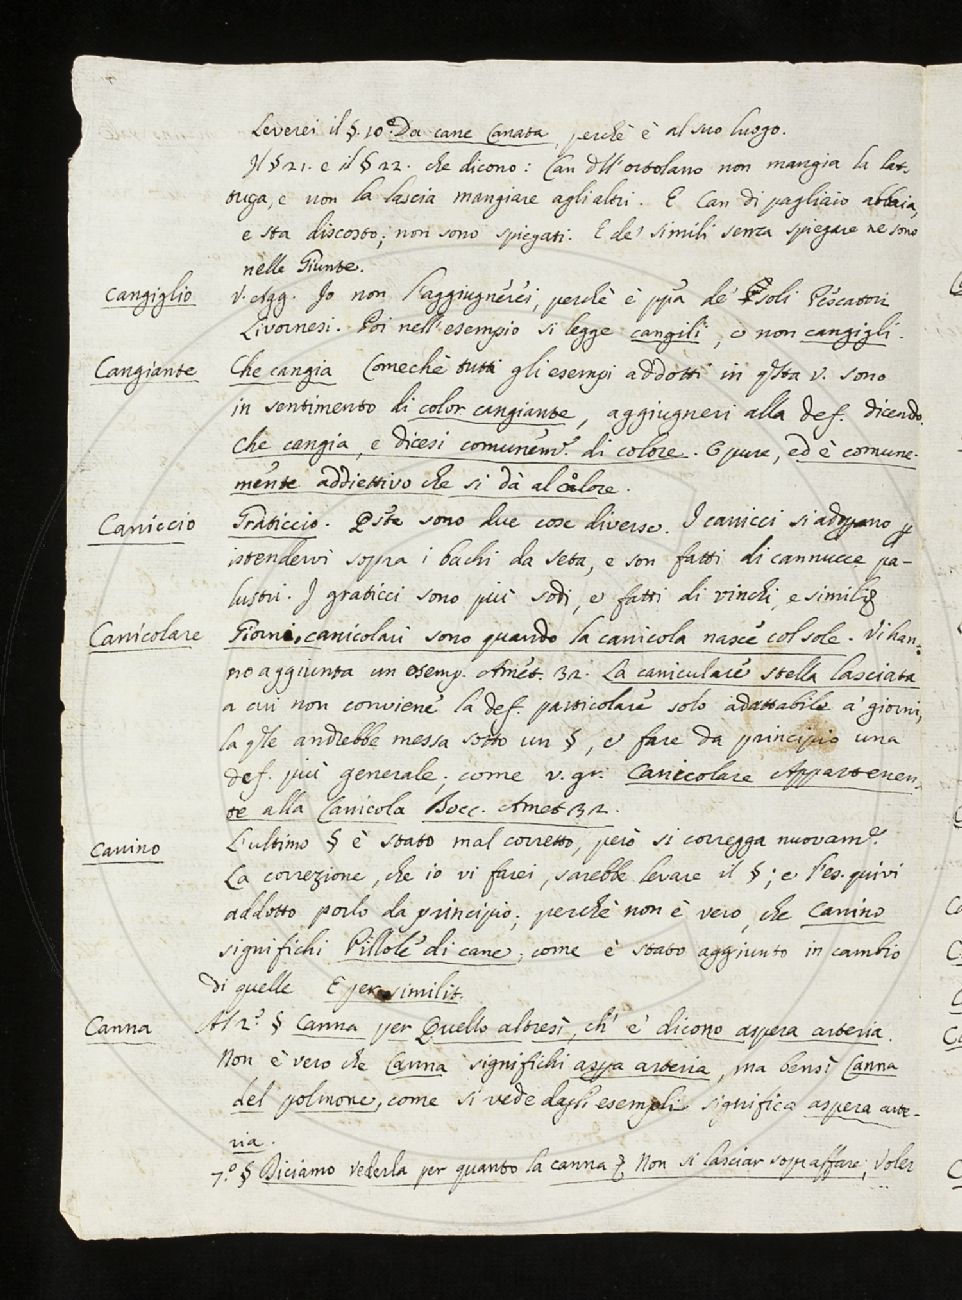 Leverei il §. 10. Da cane Canata, perchè è al suo luogo.
Il § 21. e il § 22. che dicono: Can dll'ortolano non mangia la lat-
tuga, e non la lascia mangiare agli altri. E Can di pagliaio abbaia,
e sta discosto; non sono spiegati. E de' simili senza spiegare ne sono
nelle Giunte.
Cangiglio v. Agg. Io non l'aggiugnerei, perchè è ppa de' soli Pescatori
Livornesi. Poi nell'esempio si legge cangili, e non cangigli.
Cangiante Che cangia Comechè tutti gli esempi addotti in qsta v. sono
in sentimento di color cangiante, aggiugnerei alla def. dicendo.
Che cangia, e dicesi comunem. di colore. Opure, ed è comune-
mente addiettivo che si dà al colore.
Caniccio Graticcio. Qste sono due cose diverse. I canicci si adoprano p
istendervi sopra i bachi da seta, e son fatti di cannucce pa-
lustri. I graticci sono più sodi, e fatti di vinchi, e simili
Canicolare Giorni canicolari sono quando la canicola nasce col sole. Vi han-
no aggiunta un esemp. Amet. 32. La caniculare stella lasciata
a cui non conviene la def. particolare solo adattabile a' giorni,
la qle andrebbe messa sotto un §, e fare da principio una
def. più generale, come v. gr. Canicolare Appartenen-
te alla Canicola Bocc. Amet 32.
Canino L'ultimo § è stato mal corretto, però si corregga nuovam.
La correzione, che io vi farei, sarebbe levare il §; e l'es. quivi
addotto porlo da principio; perchè non è vero, che Canino
significhi Pillole di cane, come è stato aggiunto in cambio
di quelle E per similit.
Canna Al 2.° § Canna per Quello altresì, ch' è dicono aspera arteria.
Non è vero che Canna significhi aspa arteria, ma bensì Canna
del polmone, come si vede dagli esempli significa aspera arte-
ria.
7.° § Diciamo vederla per quanto la canna Non si lasciar sopraffare; Voler